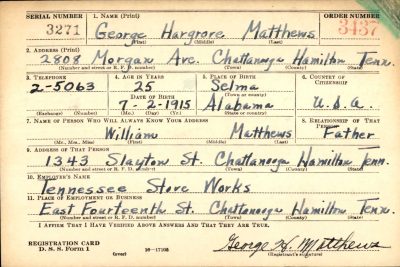 SERIAL NUMBER 1. NAME (Print) ORDER NUMBER
3271 George Hargrove Matthews 3437
(First) (Middle) (Last)
2. ADDRESS (Print)
2808 Morgan Ave. Chattanooga Hamilton Tenn.
(Number and street or R. F. D. number) (Town) (County) (State)
3. TELEPHONE 4. AGE IN YEARS 5. PLACE OF BIRTH 6. COUNTRY OF CITIZENSHIP
2-5063 25 Selma
DATE OF BIRTH (Town or county)
7-2-1915 Alabama U.S.A.
(Exchange) (Number) (Mo.) (Day) (Yr.) (State or country)
7. NAME OF PERSON WHO WILL ALWAYS KNOW YOUR ADDRESS 8. RELATIONSHIP OF THAT PERSON
William Matthews Father
(Mr., Mrs., Miss) (First) (Middle) (Last)
9. ADDRESS OF THAT PERSON
1343 Slayton St. Chattanooga Hamilton Tenn.
(Number and street or R. F. D. number) (Town) (County) (State)
10. EMPLOYER'S NAME
Tennessee Stove Works
11. PLACE OF EMPLOYMENT OR BUSINESS
East Fourteenth St. Chattanooga Hamilton Tenn.
(Number and street or R. F. D. number) (Town) (County) (State)
I AFFIRM THAT I HAVE VERIFIED ABOVE ANSWERS AND THAT THEY ARE TRUE.
REGISTRATION CARD
D. S. S. Form 1 16-17105 George H. Matthews
(over) (Registrant's signature)